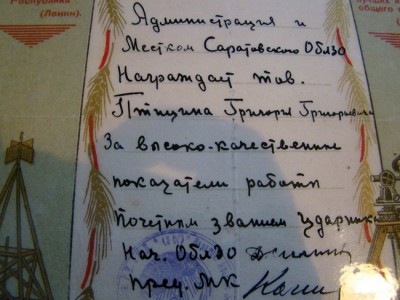 Республика
(Ленин).
общего
Администрация и
Местком Саратовского Облзо
Награждает тов.
Птицина Григория Григорьевича
За высоко-качественные
показатели работы
Почетным званием Ударника
Нач. Облзо
Пред. МК